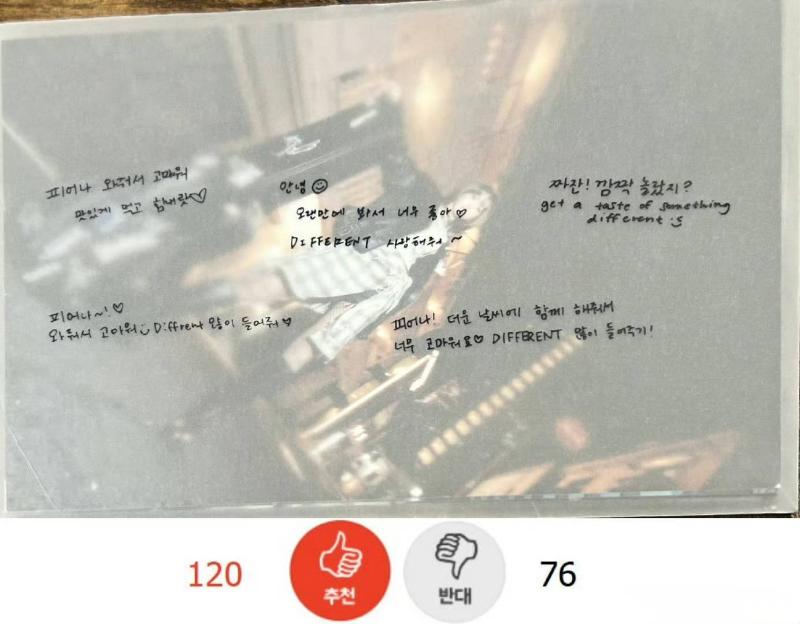 피어나 와줘서 고마워
맛있게 먹고 힘내랏♡
안녕☺
오랜만에 봐서 너무 좋아♡
DIFFERENT 사랑해줘 ~
짜잔! 깜짝 놀랐지?
get a taste of something
different :s
피어나~! ♡
와줘서 고마워 Diffrent 많이 들어줘♥
피어나! 더운 날씨에 함께 해줘서
너무 고마워요♡ DIFFERENT 많이 들어주기!
120
추천
반대
76